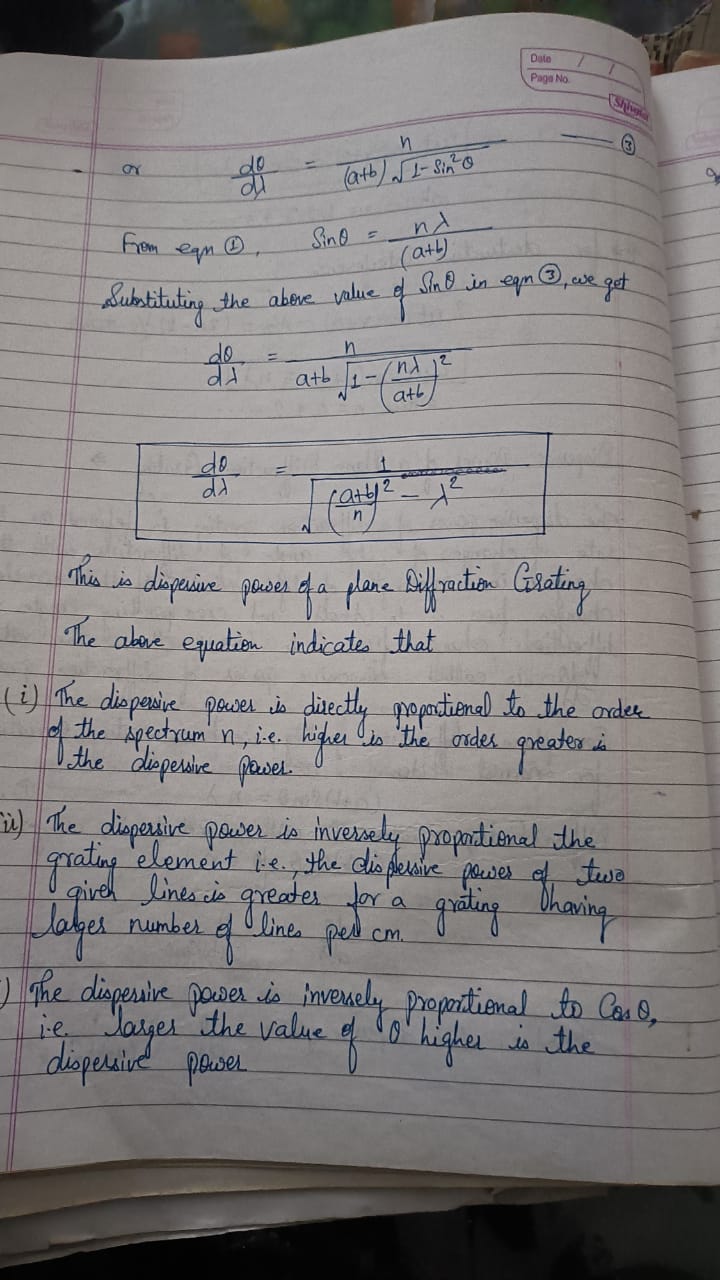 Date / /
Page No.
Shivalal
or dθ/dλ = n / (a+b) √1- Sin²θ —— ③
From eqn ①, Sinθ = nλ / (a+b)
Substituting the above value of Sinθ in eqn ③, we get
dθ/dλ = n / a+b √1-(nλ/a+b)²
dθ/dλ = 1 / √((a+b)/n)² - λ²
This is dispersive power of a plane Diffraction Grating
The above equation indicates that
(i) The dispersive power is directly proportional to the order
of the spectrum n, i.e. higher is the order greater is
the dispersive power.
ii) The dispersive power is inversely proportional the
grating element i.e., the dispersive power of two
given lines is greater for a grating having
larger number of lines per cm.
) The dispersive power is inversely proportional to Cosθ,
i.e larger the value of θ higher is the
dispersive power